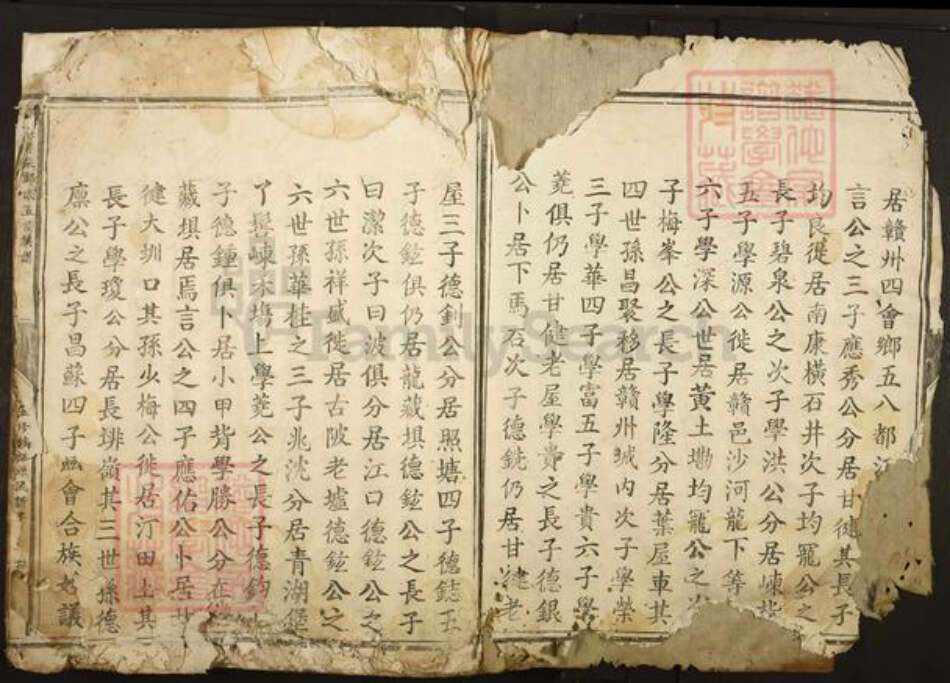 居贛州四會鄉五八都江
言公之三子應秀公分居甘健其長子
均良徙居南康橫石井次子均寵公之
長子碧泉公之次子學洪公分居崠背
五子學源公徙居贛邑沙河龍下等
六子學深公世居黃土墈均寵公之次
子梅峯公之長子學隆分居葉屋車其
四世孫昌聚移居贛州城內次子學榮
三子學華四子學富五子學貴六子學
菱俱仍居甘健老屋學貴之長子德銀
公卜居下馬石次子德銑仍居甘健老
屋三子德釗公分居照塘四子德鋕五
子德鉉俱仍居龍藏埧德鉉公之長子
曰潔次子曰波俱分居江口德鉉公之
六世孫祥盛徙居古陂老墟德鉉公之
六世孫華桂之三子兆沈分居青湖堡
丫髻崠宋塢上學菱公之長子德鈞
子德鍾俱卜居小甲背學勝公分在
藏埧居焉言公之四子應佑公卜居甘
健大圳口其孫少梅公徙居汀田上其
長子學瓊公分居長排嶺其三世孫德
廩公之長子昌蘇四子 會合族妥議
FamilySearch